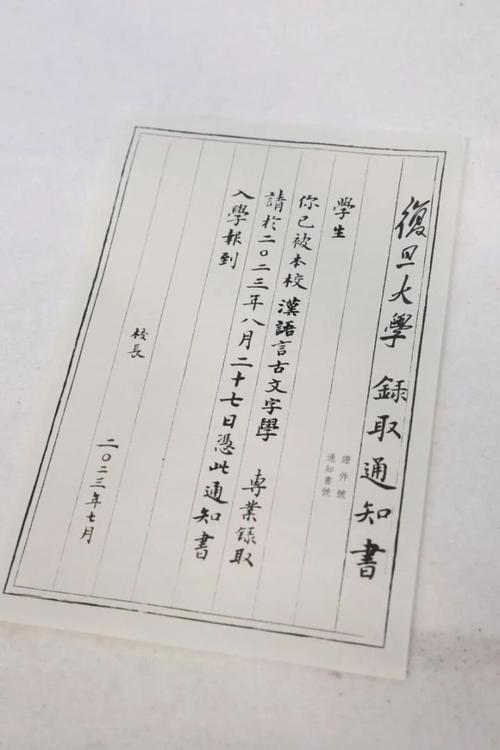 復旦大學 錄取通知書
證件號
通知書號
學生
你已被本校 漢語言古文字學 專業錄取
請於二〇二三年八月二十七日憑此通知書
入學報到
校長
二〇二三年七月